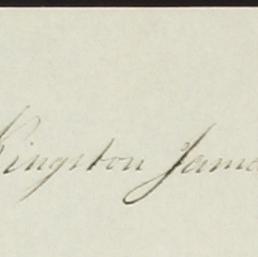 Kingston Jama